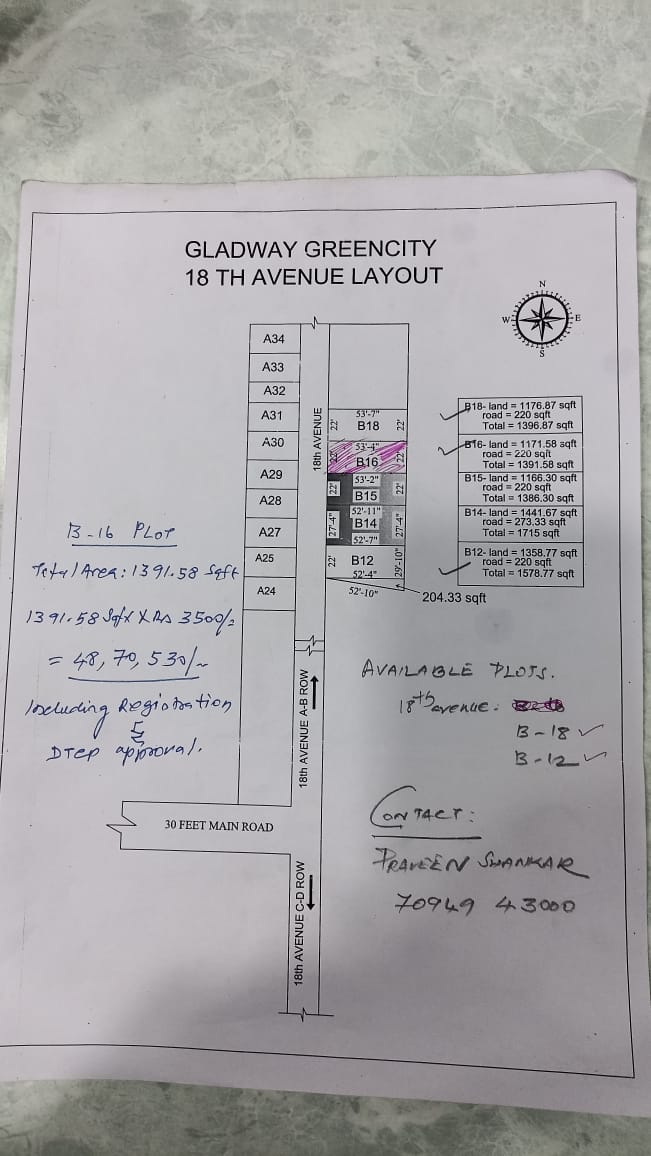 GLADWAY GREENCITY
18 TH AVENUE LAYOUT
N
W
E
S
A34
A33
A32
A31
A30
A29
A28
A27
A25
A24
18th AVENUE
53'-7"
22'
B18
22'
53'-4"
22'
B16
22'
53'-2"
22'
B15
22'
52'-11"
27'-4"
B14
27'-4"
52'-7"
22'
B12
29'-10"
52'-4"
52'-10"
204.33 sqft
B18- land = 1176.87 sqft
road = 220 sqft
Total = 1396.87 sqft
B16- land = 1171.58 sqft
road = 220 sqft
Total = 1391.58 sqft
B15- land = 1166.30 sqft
road = 220 sqft
Total = 1386.30 sqft
B14- land = 1441.67 sqft
road = 273.33 sqft
Total = 1715 sqft
B12- land = 1358.77 sqft
road = 220 sqft
Total = 1578.77 sqft
B-16 PLOT
Total Area: 1391.58 Sqft
1391.58 Sqft X Rs 3500/=
= 48,70,530/~
Including Registration
&
DTCP approval.
18th AVENUE A-B ROW
30 FEET MAIN ROAD
18th AVENUE C-D ROW
AVAILABLE PLOTS.
18th avenue:
B-18
B-12
CONTACT:
PRAVEEN SHANKAR
70949 43000